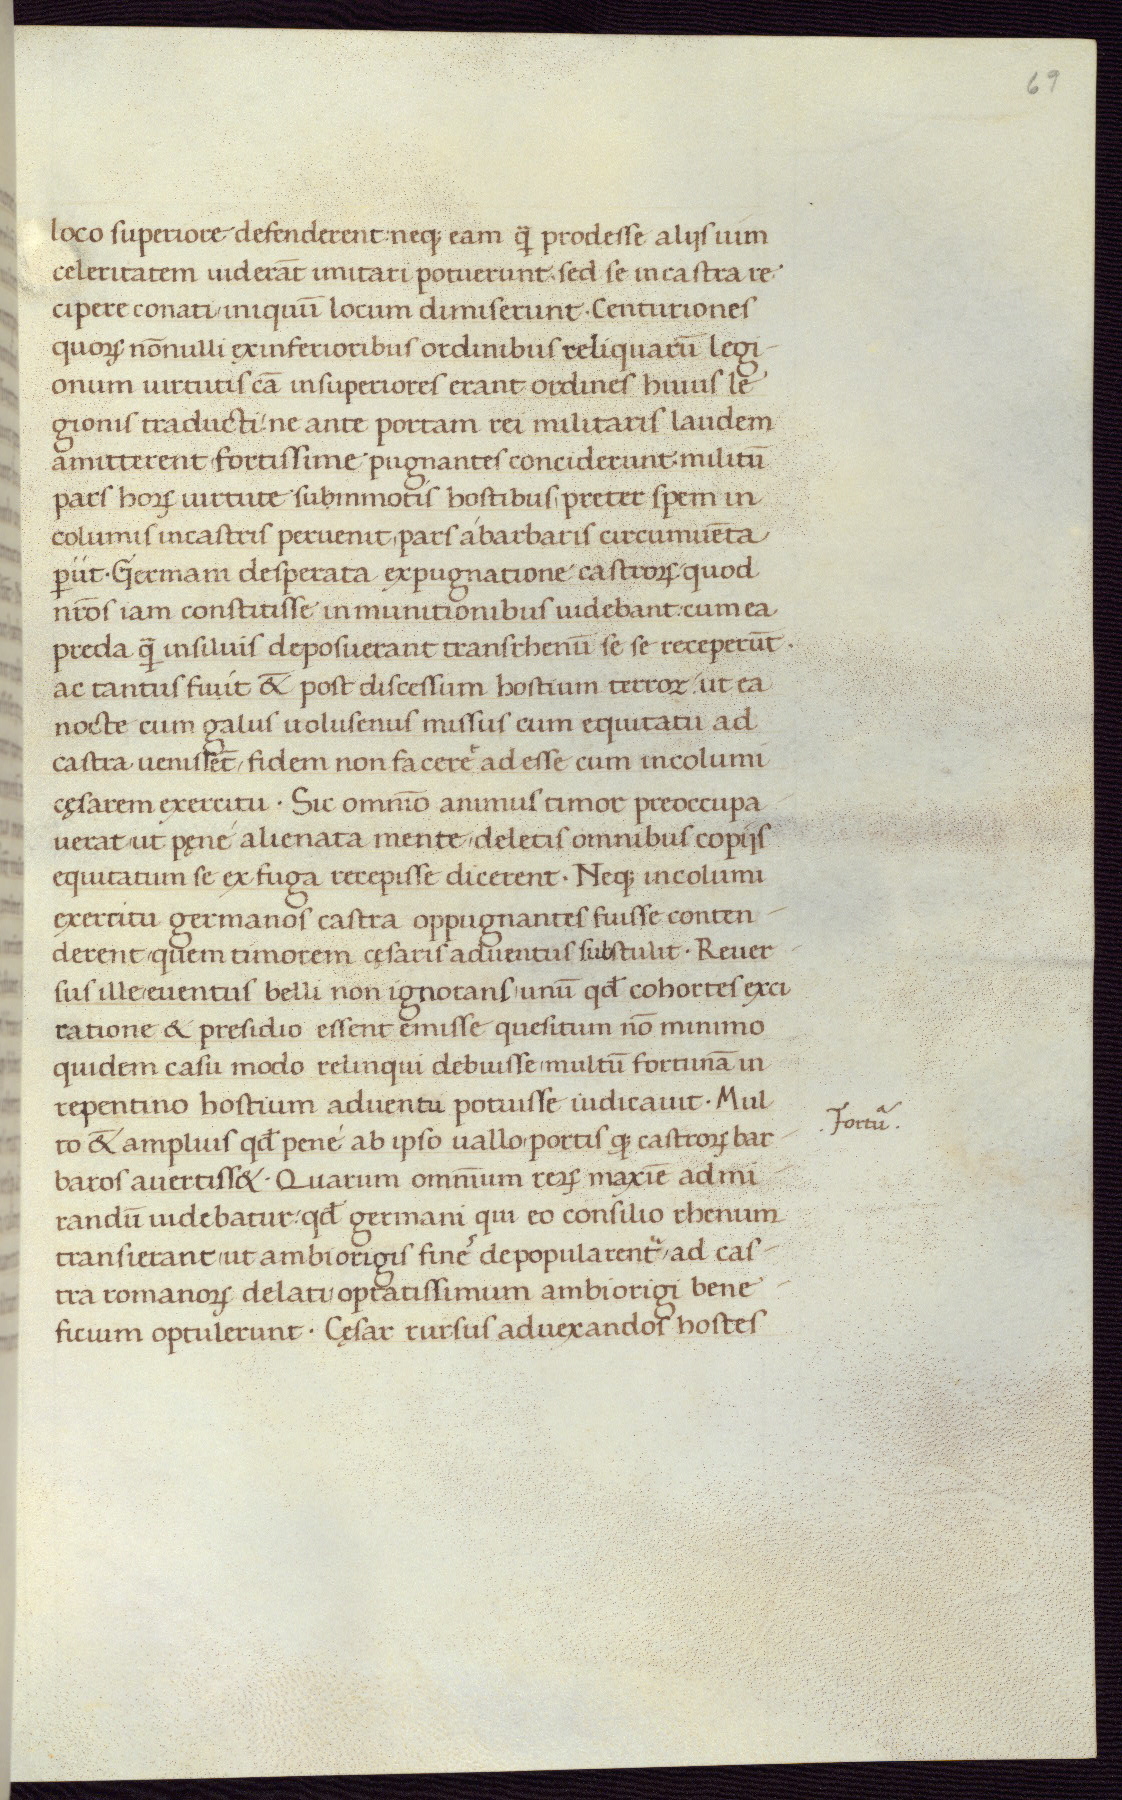 69
loco superiore defenderent: neq; eam q̄ prodesse alijs uim
celeritatem uiderāt imitari potuerunt. sed se in castra re
cipere conati, iniquū locum dimiserunt. Centuriones
quoꝝ nōnulli ex inferioribus ordinibus reliquarū legi-
onum uirtutis cā in superiores erant ordines huius le
gionis traducti, ne ante portam rei militaris laudem
amitterent, fortissime pugnantes conciderunt. militū
pars hoꝝ uirtute submmotis hostibus, preter spem in
columis in castris peruenit, pars á barbaris circumuēta
ꝑiit. Germani desperata expugnatione castroꝝ quod
nr̄os iam constitisse in munitionibus uidebant. cum ea
preda q̄ in siluis deposuerant trans rhenū se se receperūt.
ac tantus fuit & post discessum hostium terror, ut ea
nocte cum gaius uolusenus missus cum equitatu ad
castra uenisset, fidem non facerē adesse cum incolumi
cęsarem exercitu. Sic omnīo animus timor preoccupa
uerat ut pęné alienata mente, deletis omnibus copijs
equitatum se ex fuga recepisse dicerent. Neq; incolumi
exercitu germanos castra oppugnantes fuisse conten-
derent, quem timorem cęsaris aduentus substulit. Reuer
sus ille euentus belli non ignorans, unū qd̄ cohortes exci
ratione & presidio essent emisse quesitum nō minimo
quidem casu modo relinqui debuisse, multū fortunā in
repentino hostium aduentu potuisse iudicauit. Mul
to & amplius qd̄ pené ab ipso uallo, portis q; castroꝝ bar
baros auertiss&. Quarum omnīum reꝝ maxīe admi
randū uidebatur, qd̄ germani qui eo consilio rhenum
transierant, ut ambiorigis fines depopularent̄, ad cas-
tra romanoꝝ delati, optatissimum ambiorigi bene-
ficium optulerunt. Cęsar rursus ad uexandos hostes
.Fortūa.